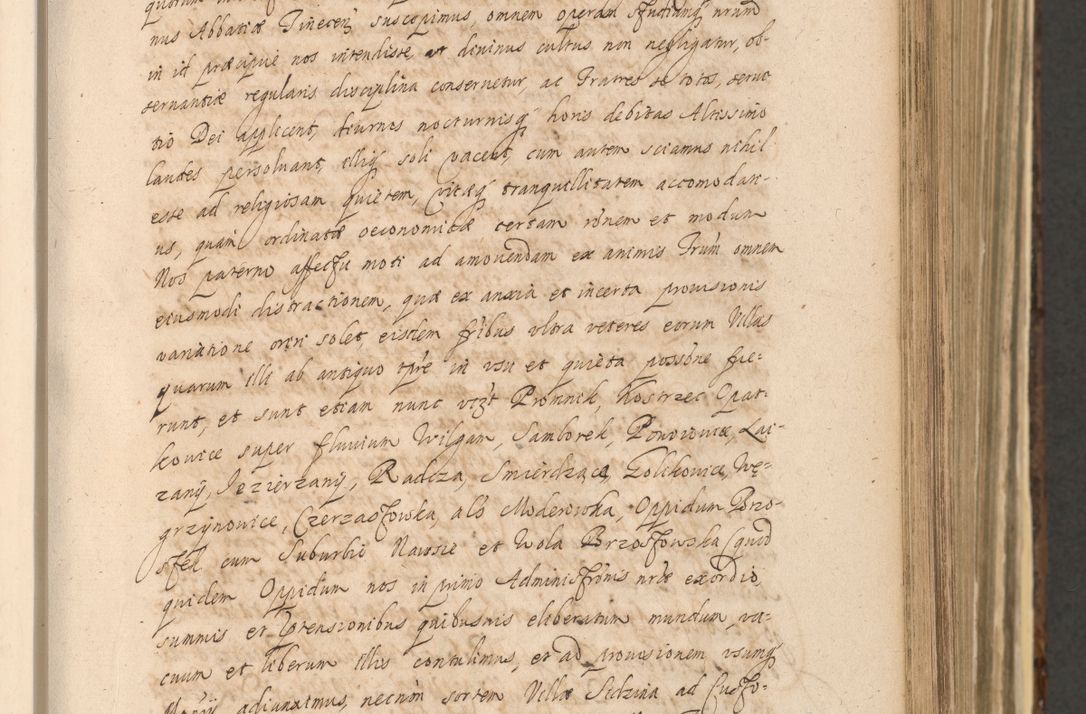 nus Abbatiæ Tinecen̄ suscopimus, omnem operam studiumq̄ nrum
in id præcipuè nos intendisse, ut diuinus cultus non negligatur, ob-
seruantiæ regularis disciplina conseruetur, ac Fratres se totos, seruo
tio Dei applicent, diurnis nocturnisq̄ horis debitas Altissimo
laudes persoluant, illiq̄ soli vacent, cum autem sciamus nihil
esse ad religiosam quietem, vitæq̄ tranquillitatem accomodati-
us, quam ordinatæ oeconomicæ certam rōnem et modum
Nos paterno affectu moti ad amouendam ex animis Frum omnem
eiusmodi distractionem, quæ ex anxia et incerta prouisionis
variatione oriri solet, eisdem fribus vltra veteres eorum Villas
quarum illi ab antiquo tpre in vsu et quieta possōne fue-
runt, et sunt etiam nunc vizt Promnik, Kostrzec Opat-
kovice super fluvium Wilgam, Samborek, Lai-
zany, Jezierzany, Radcza, Smierdzącą, Golchowice, Wę-
grzynovice, Czerzastowska, als Moderowka, Oppidum Brzo-
stek cum Suburbio Nawsie et Wola Brzostowska, quod
quidem Oppidum nos in primo Administrōnis nræ exordio
summis et quibusuis eliberatum mundum, va-
cuum et liberum illis contulimus, et ad prouisionem vsumq̄
adiunximus, necnōn sortem Villæ Sidzina ad